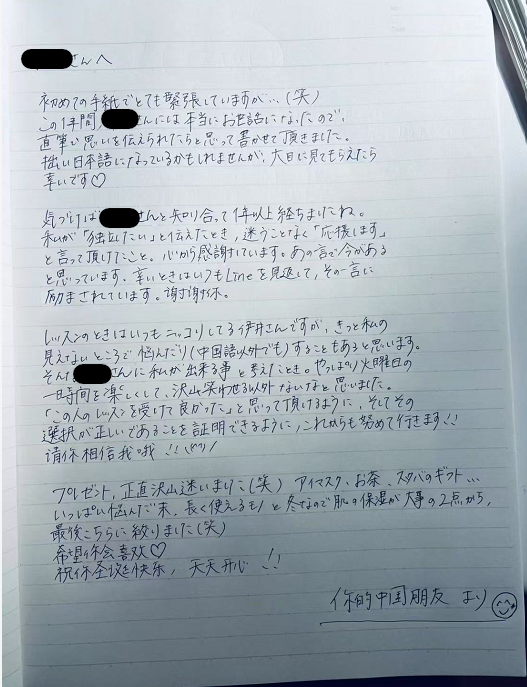 さんへ
初めての手紙でとても緊張していますが…(笑)
この1年間、さんには本当にお世話になったので、
直筆で思いを伝えられたらと思って書かせて頂きました。
拙い日本語になっているかもしれませんが、大目に見てもらえたら
幸いです♡
気づけばさんと知り合って1年以上経ちましたね。
私が「独立したい」と伝えたとき、迷うことなく「応援します」
と言って頂けたこと。心から感謝しています。あの一言で今がある
と思っています。辛いときはいつもLineを見返して、その一言に
励まされています。谢谢你。
レッスンのときはいつもニッコリしてるさんですが、きっと私の
見えないところで悩んだり(中国語以外でも)することもあると思います。
そんなさんに私が出来る事と考えたとき。やっぱり火曜日の
一時間を楽しくして、沢山笑わせる以外ないなと思いました。
「この人のレッスンを受けて良かった」と思って頂けるように、そしてその
選択が正しいであることを証明できるように、これからも努めて行きます!!
请你相信我哦!!
プレゼント、正直沢山迷いました(笑) アイマスク、お茶、スタバのギフト…
いっぱい悩んだ末、長く使えるモノと冬なので肌の保湿が大事の2点から、
最後こちらに絞りました(笑)
希望你会喜欢♡
祝你圣诞快乐，天天开心!!
你的中国朋友 より